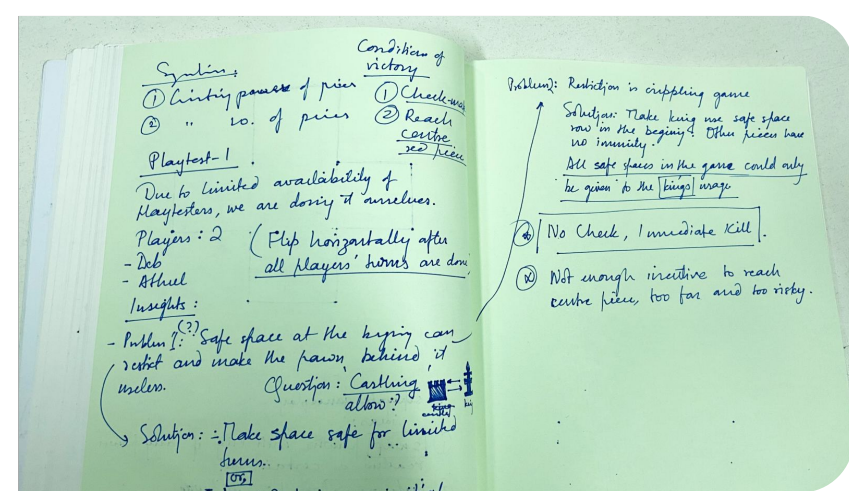 Conditions of
victory
① Check-ma
② Reach
centre
red piece
① Limiting power of pieces
② " no. of pieces
Playtest-1
Due to limited availability of
Playtesters, we are doing it ourselves.
Players: 2
- Deb
(Flip horizontally after
all players' turns are done
Insights:
- Problem 1: (?) Safe space at the can
restrict and make the pawn behind it
useless.
Question: Castling
allow?
Solution: - Make space safe for limited
turns.
or,
Problem 2: Restriction is crippling game
Solution: Make king use safe space
row in the begining. Other pieces have
no immunity.
All safe spaces in the game could only
be given to the kings usage
No Check, Immediate Kill.
Not enough incentive to reach
centre piece, too far and too risky.